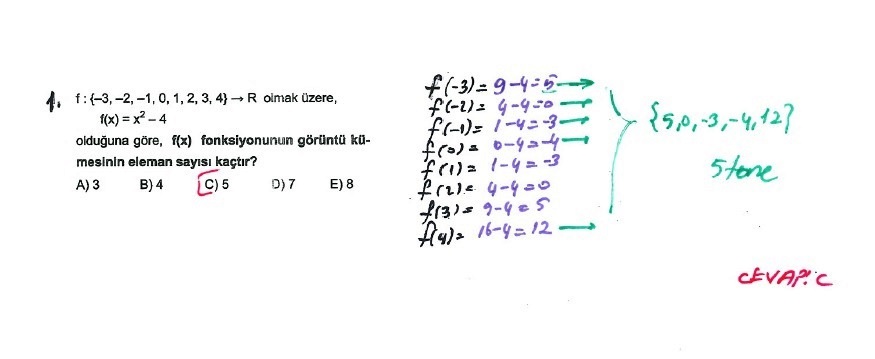 1. f : {–3, –2, –1, 0, 1, 2, 3, 4} → R olmak üzere,
f(x) = x² – 4
olduğuna göre, f(x) fonksiyonunun görüntü kü-
mesinin eleman sayısı kaçtır?
A) 3 B) 4 C) 5 D) 7 E) 8
f(-3) = 9-4=5 →
f(-2) = 4-4=0 →
f(-1) = 1-4=-3 →
f(0) = 0-4=-4 →
f(1) = 1-4=-3
f(2) = 4-4=0
f(3) = 9-4=5
f(4) = 16-4=12 →
{5,0,-3,-4,12}
5 tane
CEVAP: C